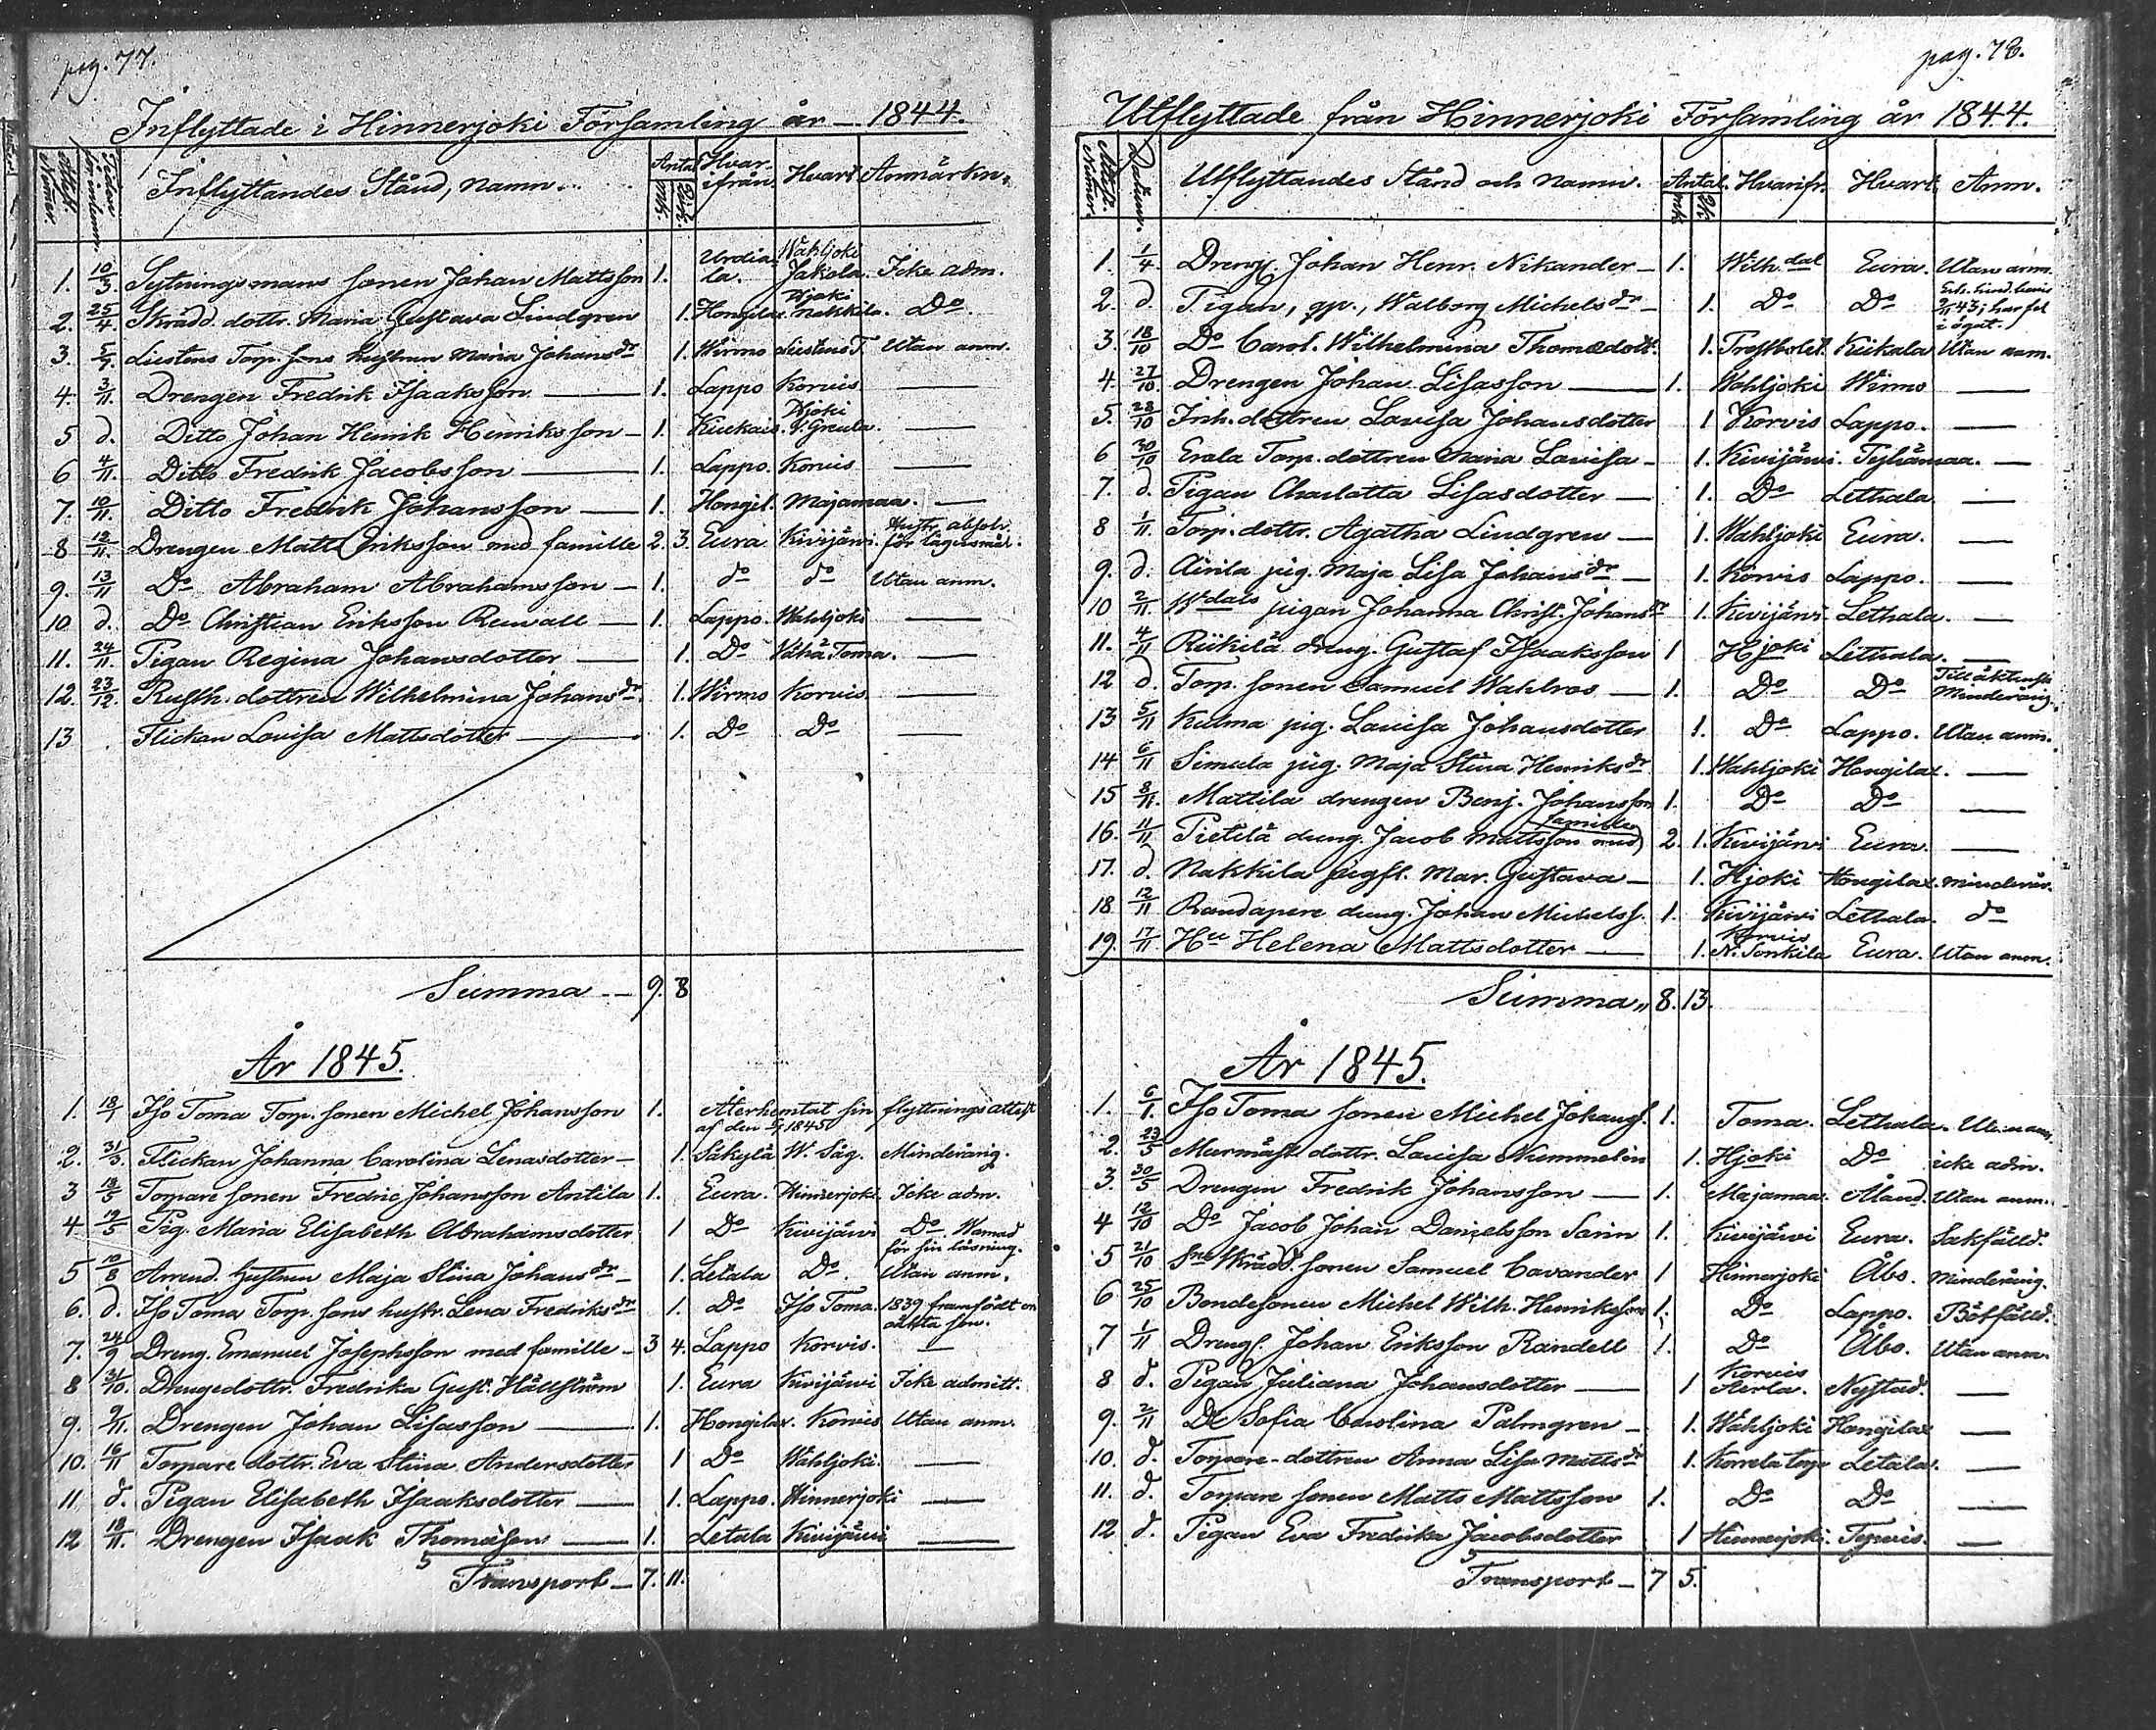 pag. 77.
Inflyttade i Hinnerjoki Församling år — 1844.
Inflyttandes Stånd, namn. Antal Hvarifrån. Hvart Anmärkn.
1. 10/3. Sytningsmans sonen Johan Mattsson 1. Urdiala. Wahljoki Jakola. Icke adm.
2. 25/4. Skrädd. dottr. Maria Gustava Lindgren 1. Hongilax. Hjoki Nakkila. Do.
3. Liestens Torp. sons hustrun Maria Johansdr 1. Wirmo Liestens T. Utan anm.
4. 3/11. Drengen Fredrik Isaaksson — 1. Lappo Korvis —
5 d. Ditto Johan Henrik Henriksson — 1. Kiukais. Hjoki —
6 4/11. Ditto Fredrik Jacobsson — 1. Lappo. Korvis —
7. 10/11. Ditto Fredrik Johansson — 1. Hongil. Majamaa. —
8 12/11. Drengen Matts Eriksson med famille 2. 3. Eura Kivijärvi. Hustr. absolv. för lägersmål.
9. 13/11 Do Abraham Abrahamsson — 1. do do Utan anm.
10 d. Do Christian Eriksson Renvall — 1. Lappo. Wahljoki —
11. 24/11. Pigan Regina Johansdotter — 1. Do Vähä Toma. —
12. 23/12. Rusth. dottren Wilhelmina Johansdr. 1. Wirmo Korvis —
13 Flickan Lovisa Mattsdotter — 1. Do Do —
Summa — 9. 8
År 1845.
1. 18/1 Iso Toma Torp. sonen Michel Johansson 1. Återhemtat sin flyttningsattest
af den 6/1 1845
2. 31/3. Flickan Johanna Carolina Lenasdotter — 1. Säkylä W. Säg. Minderårig.
3 18/5 Torpare sonen Fredric Johansson Antila 1. Eura. Hinnerjoki. Icke adm.
4 19/5 Pig. Maria Elisabeth Abrahamsdotter 1 Do Kivijärvi Do. Warnad för sin läsning.
5 10/8 Arrend. hustrun Maja Stina Johansdr — 1. Letala Do. Utan anm.
6. d. Iso Toma Torp. sons hustr. Lena Fredriksdr 1. Do Iso Toma. 1839 framfödt en oäkta son.
7. 24/9 Dreng. Emanuel Josephsson med famille — 3 4. Lappo Korvis. —
8 31/10. Drengedottr. Fredrika Gust. Hällström 1. Eura Kivijärvi Icke admitt.
9. 9/11. Drengen Johan Lisasson — 1. Hongilax. Korvis Utan anm.
10. 16/11 Torpare dottr. Eva Stina Andersdotter 1 Do Wahljoki. —
11 d. Pigan Elisabeth Isaaksdotter — 1. Lappo. Hinnerjoki —
12 18/11. Drengen Isaak Thomasson — 1. Letala Kivijärvi —
5 Transport — 7. 11.
pag. 78.
Utflyttade från Hinnerjoki Församling år 1844.
Utflyttandes Stånd och namn. Antal. Hvarifr. Hvart Anm.
1. 1/4. Drengs. Johan Henr. Nikander — 1. Wilh.dal Eura. Utan anm.
2. d. Pigan, qp., Walborg Michelsdr — 1. Do Do
3. 18/10 Do Carol. Wilhelmina Thomædott. 1. Kiikala Utan anm.
4. 27/10. Drengen Johan Lisasson — 1. Wahljoki Wirmo —
5. 28/10 Inh. dottren Lovisa Johansdotter 1 Korvis Lappo. —
6 30/10 Torp. dottren Maria Lovisa — 1. Kivijärvi. —
7. d. Pigan Charlotta Lisasdotter — 1. Do Lethala —
8 1/11 Torp. dottr. Agatha Lindgren — 1. Wahljoki Eura. —
9. d. pig. Maja Lisa Johansdr — 1. Korvis Lappo. —
10 2/11. Wdals pigan Johanna Christ. Johansdr 1. Kivijärvi Lethala. —
11. 4/11 Riikilä dreng. Gustaf Isaaksson 1 Hjoki Lethala. —
12 d. Torp. sonen Samuel Wahlros — 1. Do Do Till äktensk. Minderårig.
13 5/11 Kulma pig. Lovisa Johansdotter 1. Do Lappo. Utan anm.
14 6/11 Simula pig. Maja Stina Henriksdr 1. Wahljoki Hongilax. —
15 8/11. Mattila drengen Benj. Johansson 1. Do Do —
16. 11/11 Pietilä dreng. Jacob Mattsson med famille 2. 1. Kivijärvi Eura. —
17. d. Nakkila pigfl. Mar. Gustava — 1. Hjoki Hongilax. minderår.
18 12/11 dreng. Johan Michelss. 1. Kivijärvi Lethala. do
19. 17/11 Hu Helena Mattsdotter — 1. Korvis N. Sonkila Eura. Utan anm.
Summa „ 8. 13.
År 1845.
1. 6/1. Iso Toma sonen Michel Johanss. 1. Toma. Lethala. Utan anm.
2. 23/5 Murmäst. dottr. Lovisa Nummelin 1. Hjoki Do icke adm.
3. 30/5 Drengen Fredrik Johansson — 1. Majamaa. Åland. Utan anm.
4 12/10 Do Jacob Johan Danielsson Sarin 1. Kivijärvi Eura. Sakfälld.
5 21/10 Skrädd. sonen Samuel Cavander 1 Hinnerjoki Åbo. Minderårig.
6 25/10 Bondesonen Michel Wilh. Henriksson 1. Do Lappo. Bötfälld.
7 1/11 Drengs. Johan Eriksson Randell 1. Do Åbo. Utan anm.
8 d. Pigan Juliana Johansdotter — 1 Korvis Aerla. Nystad. —
9. 2/11 Do Sofia Carolina Palmgren — 1. Wahljoki Hongilax —
10. d. Torpare-dottren Anna Lisa Mattsdr 1. Korrela torp Letala. —
11. d. Torpare sonen Matts Mattsson 1. Do Do —
12. d. Pigan Eva Fredrika Jacobsdotter 1 Hinnerjoki. —
5 Transport — 7 5.